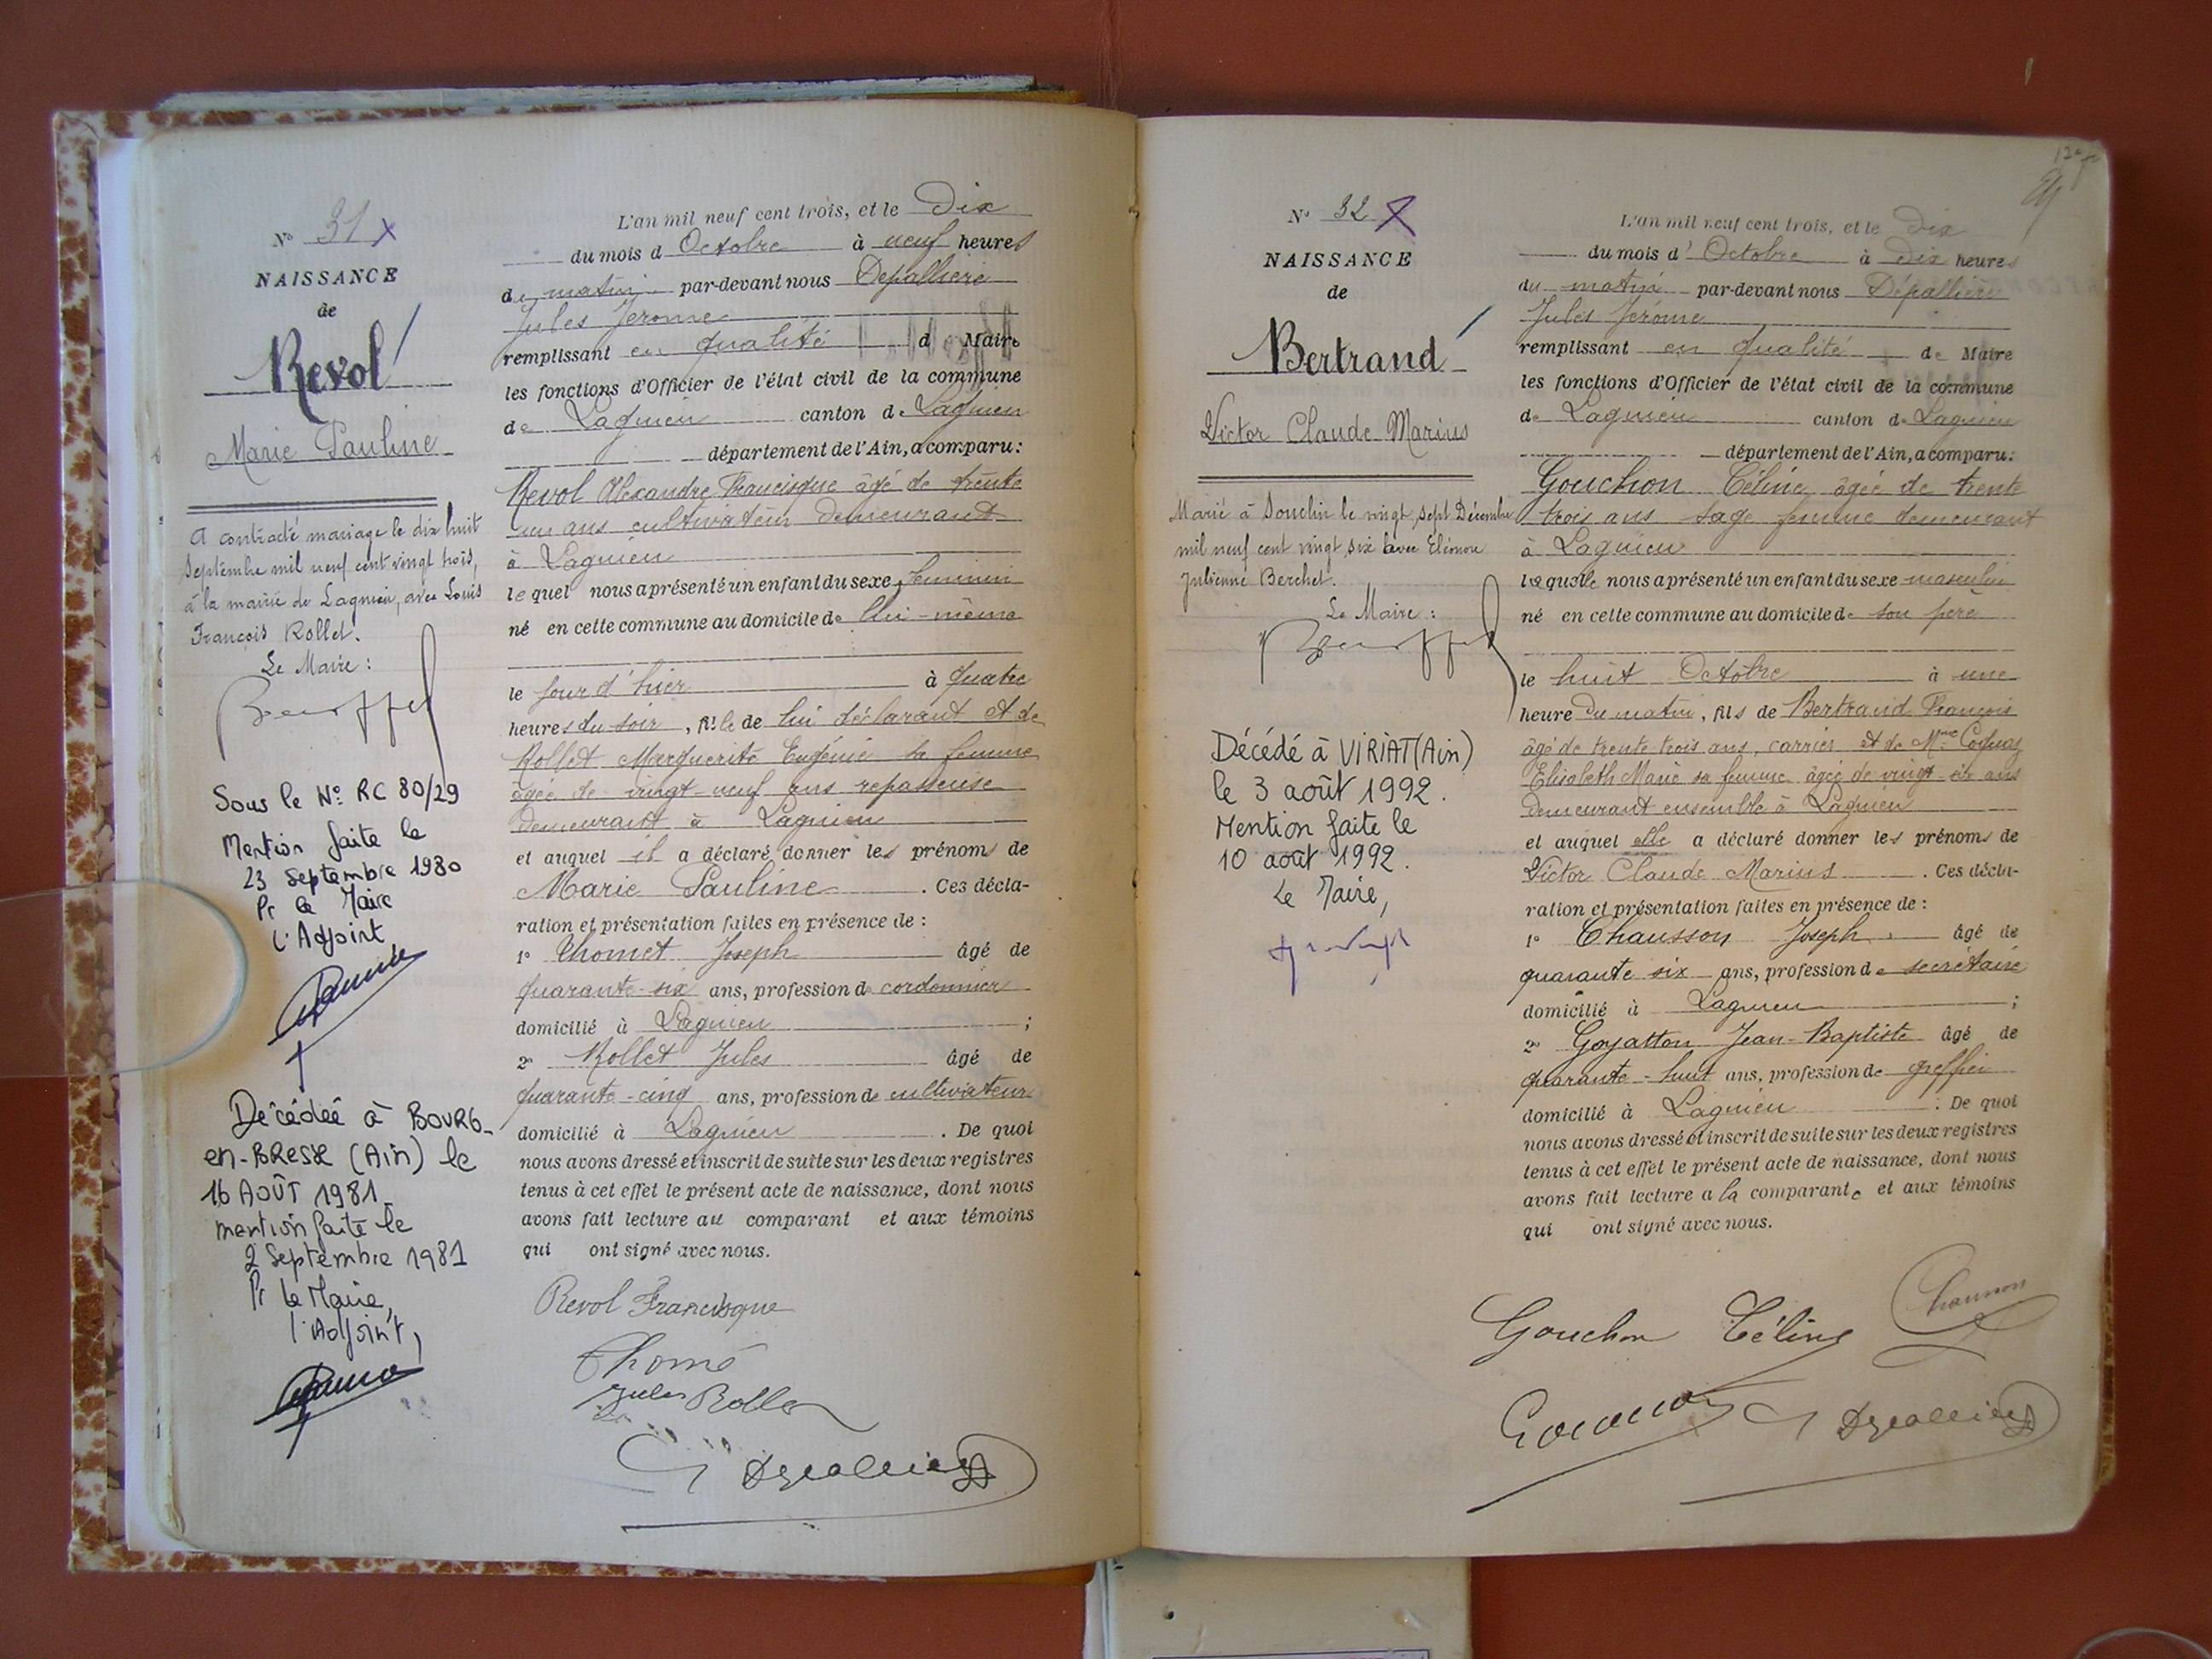 N° 31 X
NAISSANCE
de
Revol
Marie Pauline
A contracté mariage le dix huit
septembre mil neuf cent vingt trois,
à la mairie de Lagnieu, avec Louis
François Rollet.
Le Maire :
Sous le N° RC 80/29
Mention faite le
23 septembre 1980
Pr le Maire
L'Adjoint
Décédée à BOURG-
en-BRESSE (Ain) le
16 AOÛT 1981
mention faite le
2 Septembre 1981
Pr le Maire,
l'Adjoint,
L'an mil neuf cent trois, et le Dix
du mois d Octobre à neuf heures
du matin par-devant nous Dépallière
Jules Jérome
remplissant en qualité de Maire
les fonctions d'Officier de l'état civil de la commune
de Lagnieu canton de Lagnieu
département de l'Ain, a comparu :
Revol Alexandre Francisque âgé de trente
un ans cultivateur demeurant
à Lagnieu
lequel nous a présenté un enfant du sexe féminin
né en cette commune au domicile de lui-même
le jour d'hier à quatre
heures du soir, fille de lui déclarant et de
Rollet Marguerite Eugénie sa femme
âgée de vingt-neuf ans repasseuse
demeurant à Lagnieu
et auquel il a déclaré donner les prénoms de
Marie Pauline. Ces décla-
ration et présentation faites en présence de :
1° Thomet Joseph âgé de
quarante-six ans, profession de cordonnier
domicilié à Lagnieu ;
2° Rollet Jules âgé de
quarante-cinq ans, profession de cultivateur
domicilié à Lagnieu. De quoi
nous avons dressé et inscrit de suite sur les deux registres
tenus à cet effet le présent acte de naissance, dont nous
avons fait lecture au comparant et aux témoins
qui ont signé avec nous.
Revol Francisque
Thomé
Jules Rollet
N° 32 X
NAISSANCE
de
Bertrand
Victor Claude Marius
Marié à Souclin le vingt sept Décembre
mil neuf cent vingt six avec Eléonore
Julienne Berchet.
Le Maire :
Décédé à VIRIAT (Ain)
le 3 août 1992.
Mention faite le
10 août 1992.
Le Maire,
L'an mil neuf cent trois, et le dix
du mois d'Octobre à dix heures
du matin par-devant nous Dépallière
Jules Jérôme
remplissant en qualité de Maire
les fonctions d'Officier de l'état civil de la commune
de Lagnieu canton de Lagnieu
département de l'Ain, a comparu :
Gouchon Céline âgée de trente
trois ans sage femme demeurant
à Lagnieu
laquelle nous a présenté un enfant du sexe masculin
né en cette commune au domicile de son père
le huit Octobre à une
heure du matin, fils de Bertrand François
âgé de trente trois ans, carrier et de Mme
Elisabeth Marie sa femme âgée de vingt six ans
demeurant ensemble à Lagnieu
et auquel elle a déclaré donner les prénoms de
Victor Claude Marius. Ces décla-
ration et présentation faites en présence de :
1° Chausson Joseph âgé de
quarante six ans, profession de secrétaire
domicilié à Lagnieu ;
2° Goyatton Jean-Baptiste âgé de
quarante-huit ans, profession de greffier
domicilié à Lagnieu. De quoi
nous avons dressé et inscrit de suite sur les deux registres
tenus à cet effet le présent acte de naissance, dont nous
avons fait lecture a la comparante et aux témoins
qui ont signé avec nous.
Chausson
Gouchon Céline